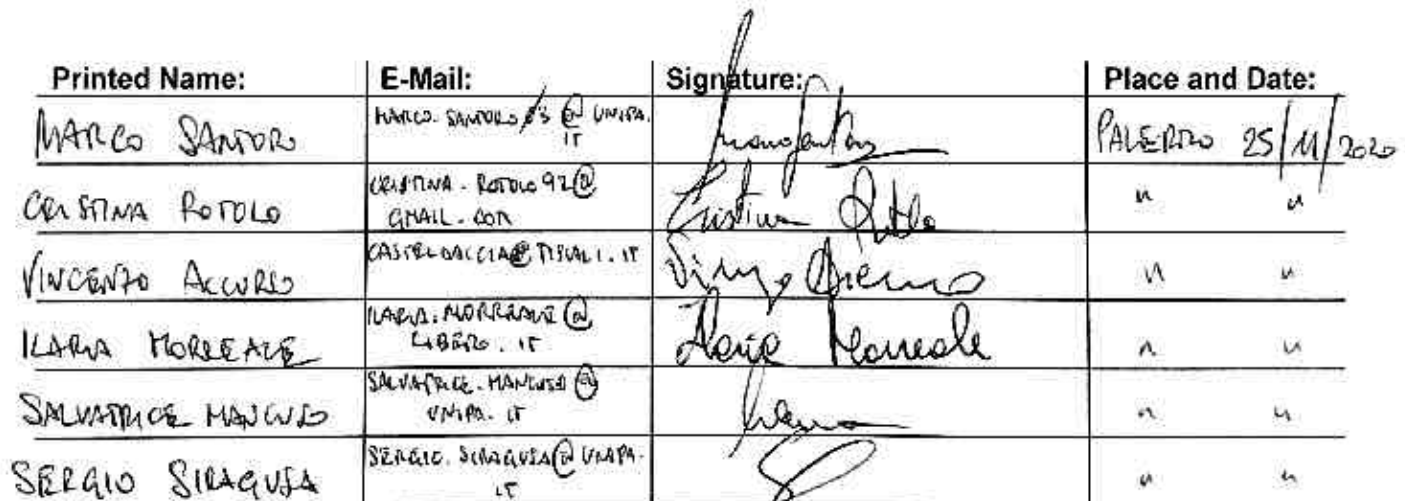 Printed Name: E-Mail: Signature: Place and Date:
MARCO SANTORO MARCO.SANTORO @ UNIPA. PALERMO 25/11/2020
IT
CRISTINA ROTOLO CRISTINA.ROTOLO92@ Cristina Rotolo " "
GMAIL.COM
VINCENZO ACCURSO CASTELDACCIA@TISCALI.IT " "
ILARIA MORREALE ILARIA.MORREALE@ Ilaria Morreale " "
LIBERO.IT
SALVATRICE MANCUSO SALVATRICE.MANCUSO@ " "
UNIPA.IT
SERGIO SIRAGUSA SERGIO.SIRAGUSA@UNIPA. " "
IT